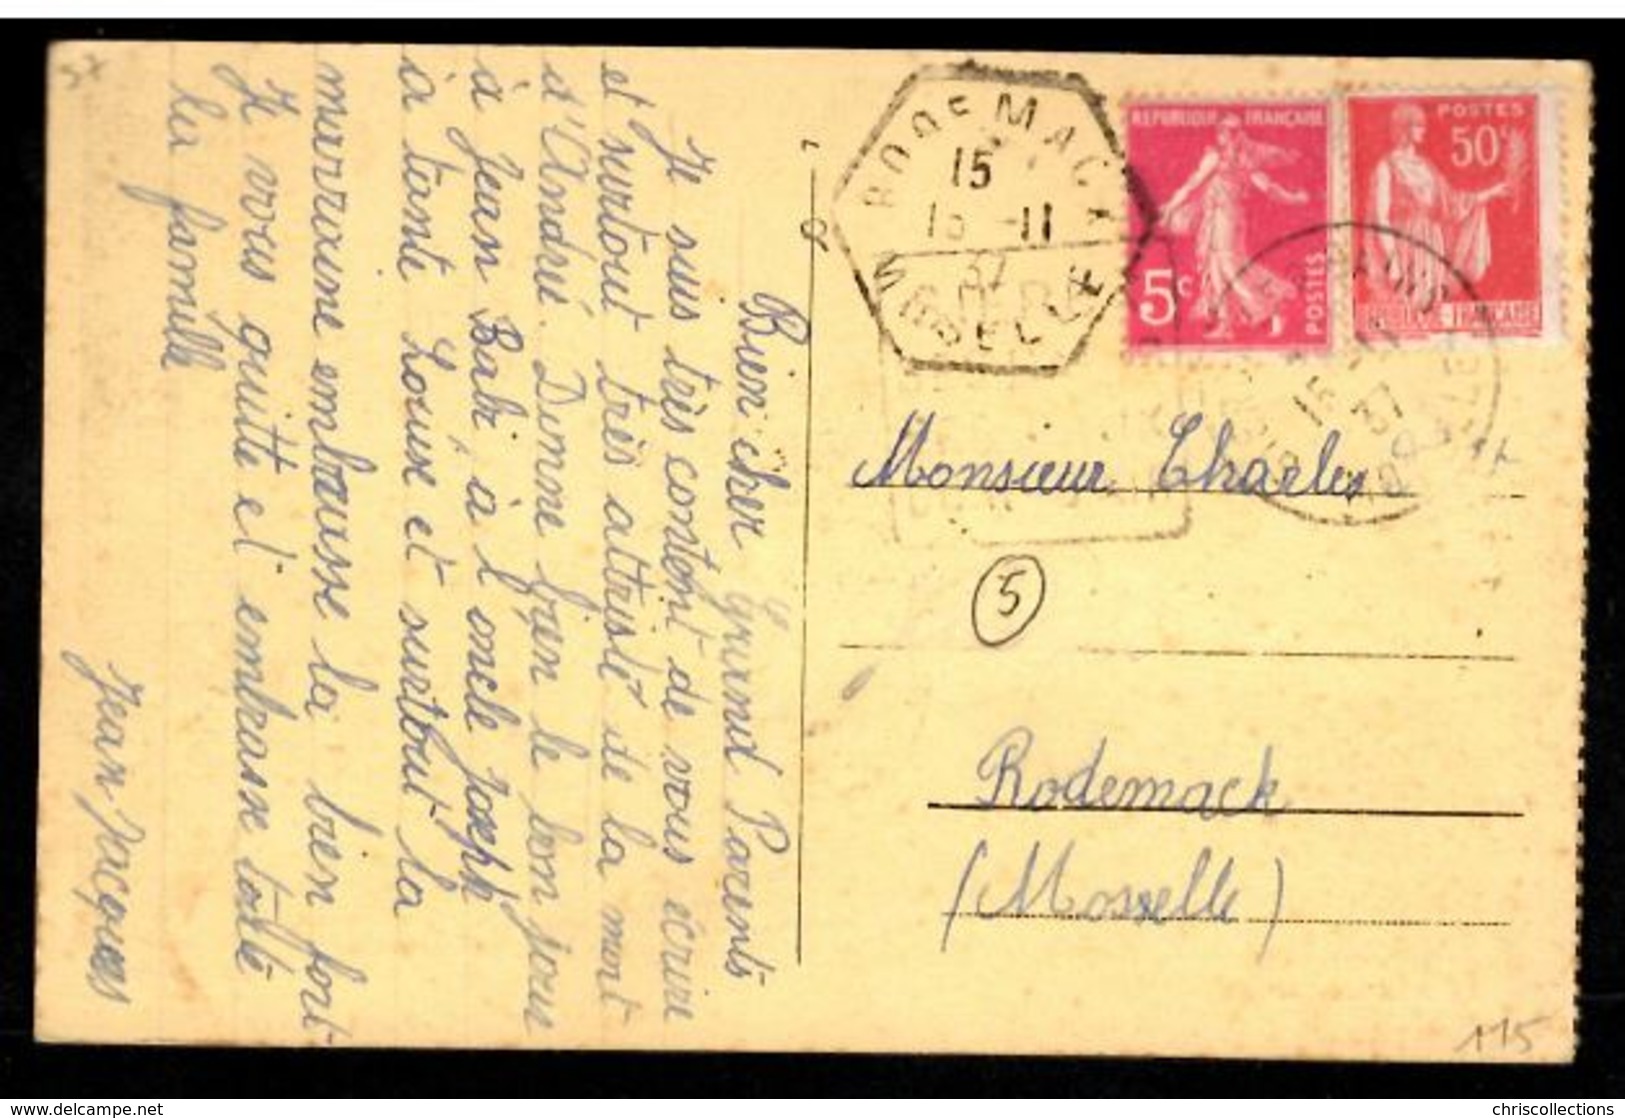 Bien cher Grand Parents
Je suis très content de vous écrire
et surtout très attristé de la mort
d'André. Donne bien le bon jour
à Jean Bab, à l'oncle Joseph
à tante Louise et surtout la
marraine embrausse la bien fort
Je vous quitte et embrasse toute
la famille
Jean Jacques
57
RODEMACK
15
15 -11
37
MOSELLE
REPUBLIQUE FRANÇAISE
5c
POSTES
POSTES
50c
REPUBLIQUE FRANÇAISE
15 -11
37
MOSELLE
Monsieur Charles
5
Rodemack
(Moselle)
115
www.delcampe.net
chriscollections